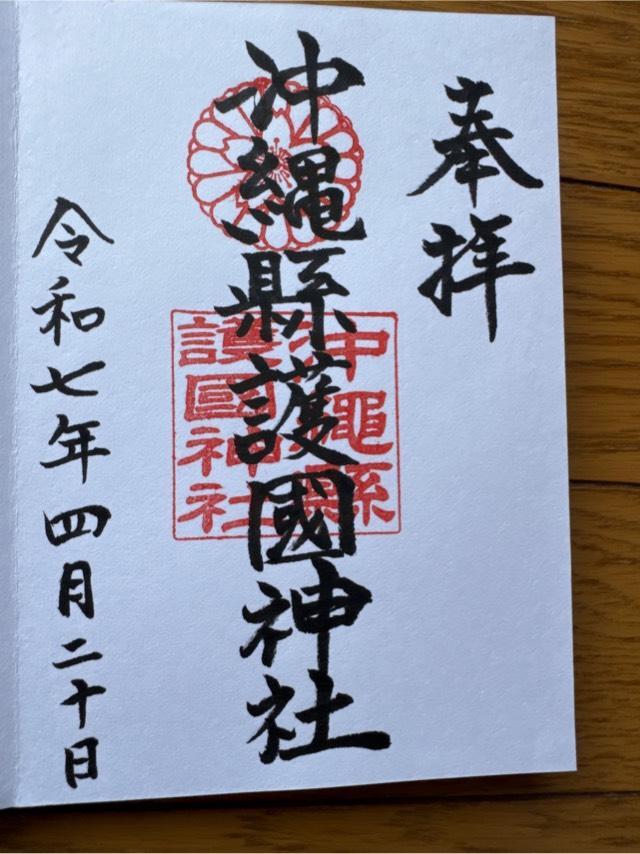 奉拝
沖縄縣護國神社
沖縄縣
護國神社
令和七年四月二十日